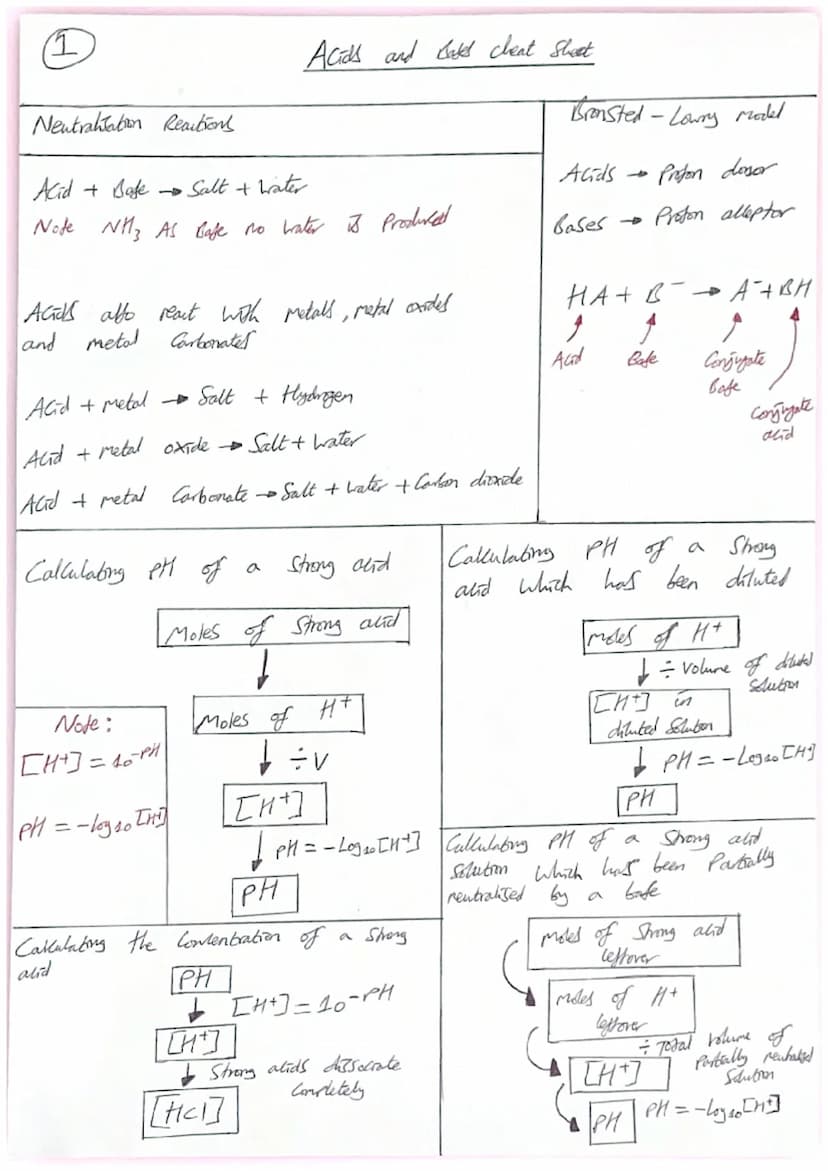 1
Acids and Bases cheat sheet
Neutralisation Reactions
Acid + Base → Salt + Water
Note NH₃ As Base no water is Produced
Acids also react with metals, metal oxides
and metal Carbonates
Acid + metal → Salt + Hydrogen
Acid + metal oxide → Salt + Water
Acid + metal Carbonate → Salt + Water + Carbon dioxide
Bronsted - Lowry model
Acids → Proton donor
Bases → Proton acceptor
HA + B⁻ → A⁻ + BH
Acid
Base
Conjugate
Base
Conjugate
acid
Calculating PH of a Strong acid
Moles of Strong acid
Moles of H⁺
÷ V
[H⁺]
PH = -Log₁₀[H⁺]
PH
Note:
[H⁺] = 10⁻ᴾᴴ
PH = -log₁₀[H⁺]
Calculating PH of a Strong
acid which has been diluted
moles of H⁺
÷ Volume of diluted
Solution
[H⁺] in
diluted Solution
PH = -Log₁₀[H⁺]
PH
Calculating the Concentration of a Strong
acid
PH
[H⁺] = 10⁻ᴾᴴ
[H⁺]
Strong acids dissociate
Completely
[HCl]
Calculating PH of a Strong acid
Solution which has been Partially
neutralised by a base
moles of Strong acid
leftover
moles of H⁺
leftover
÷ Total Volume of
Partially neutralised
Solution
[H⁺]
PH = -log₁₀[H⁺]
PH